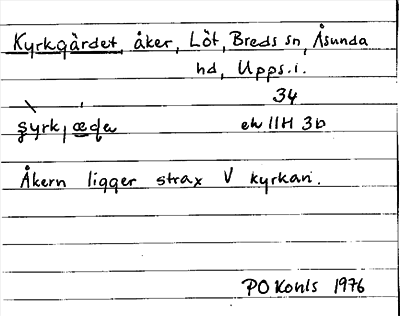 Kyrkgärdet, åker, Löt, Breds sn, Åsunda
hd, Upps. l.
34
ek 11H 3b
Åkern ligger strax V kyrkan.
1976